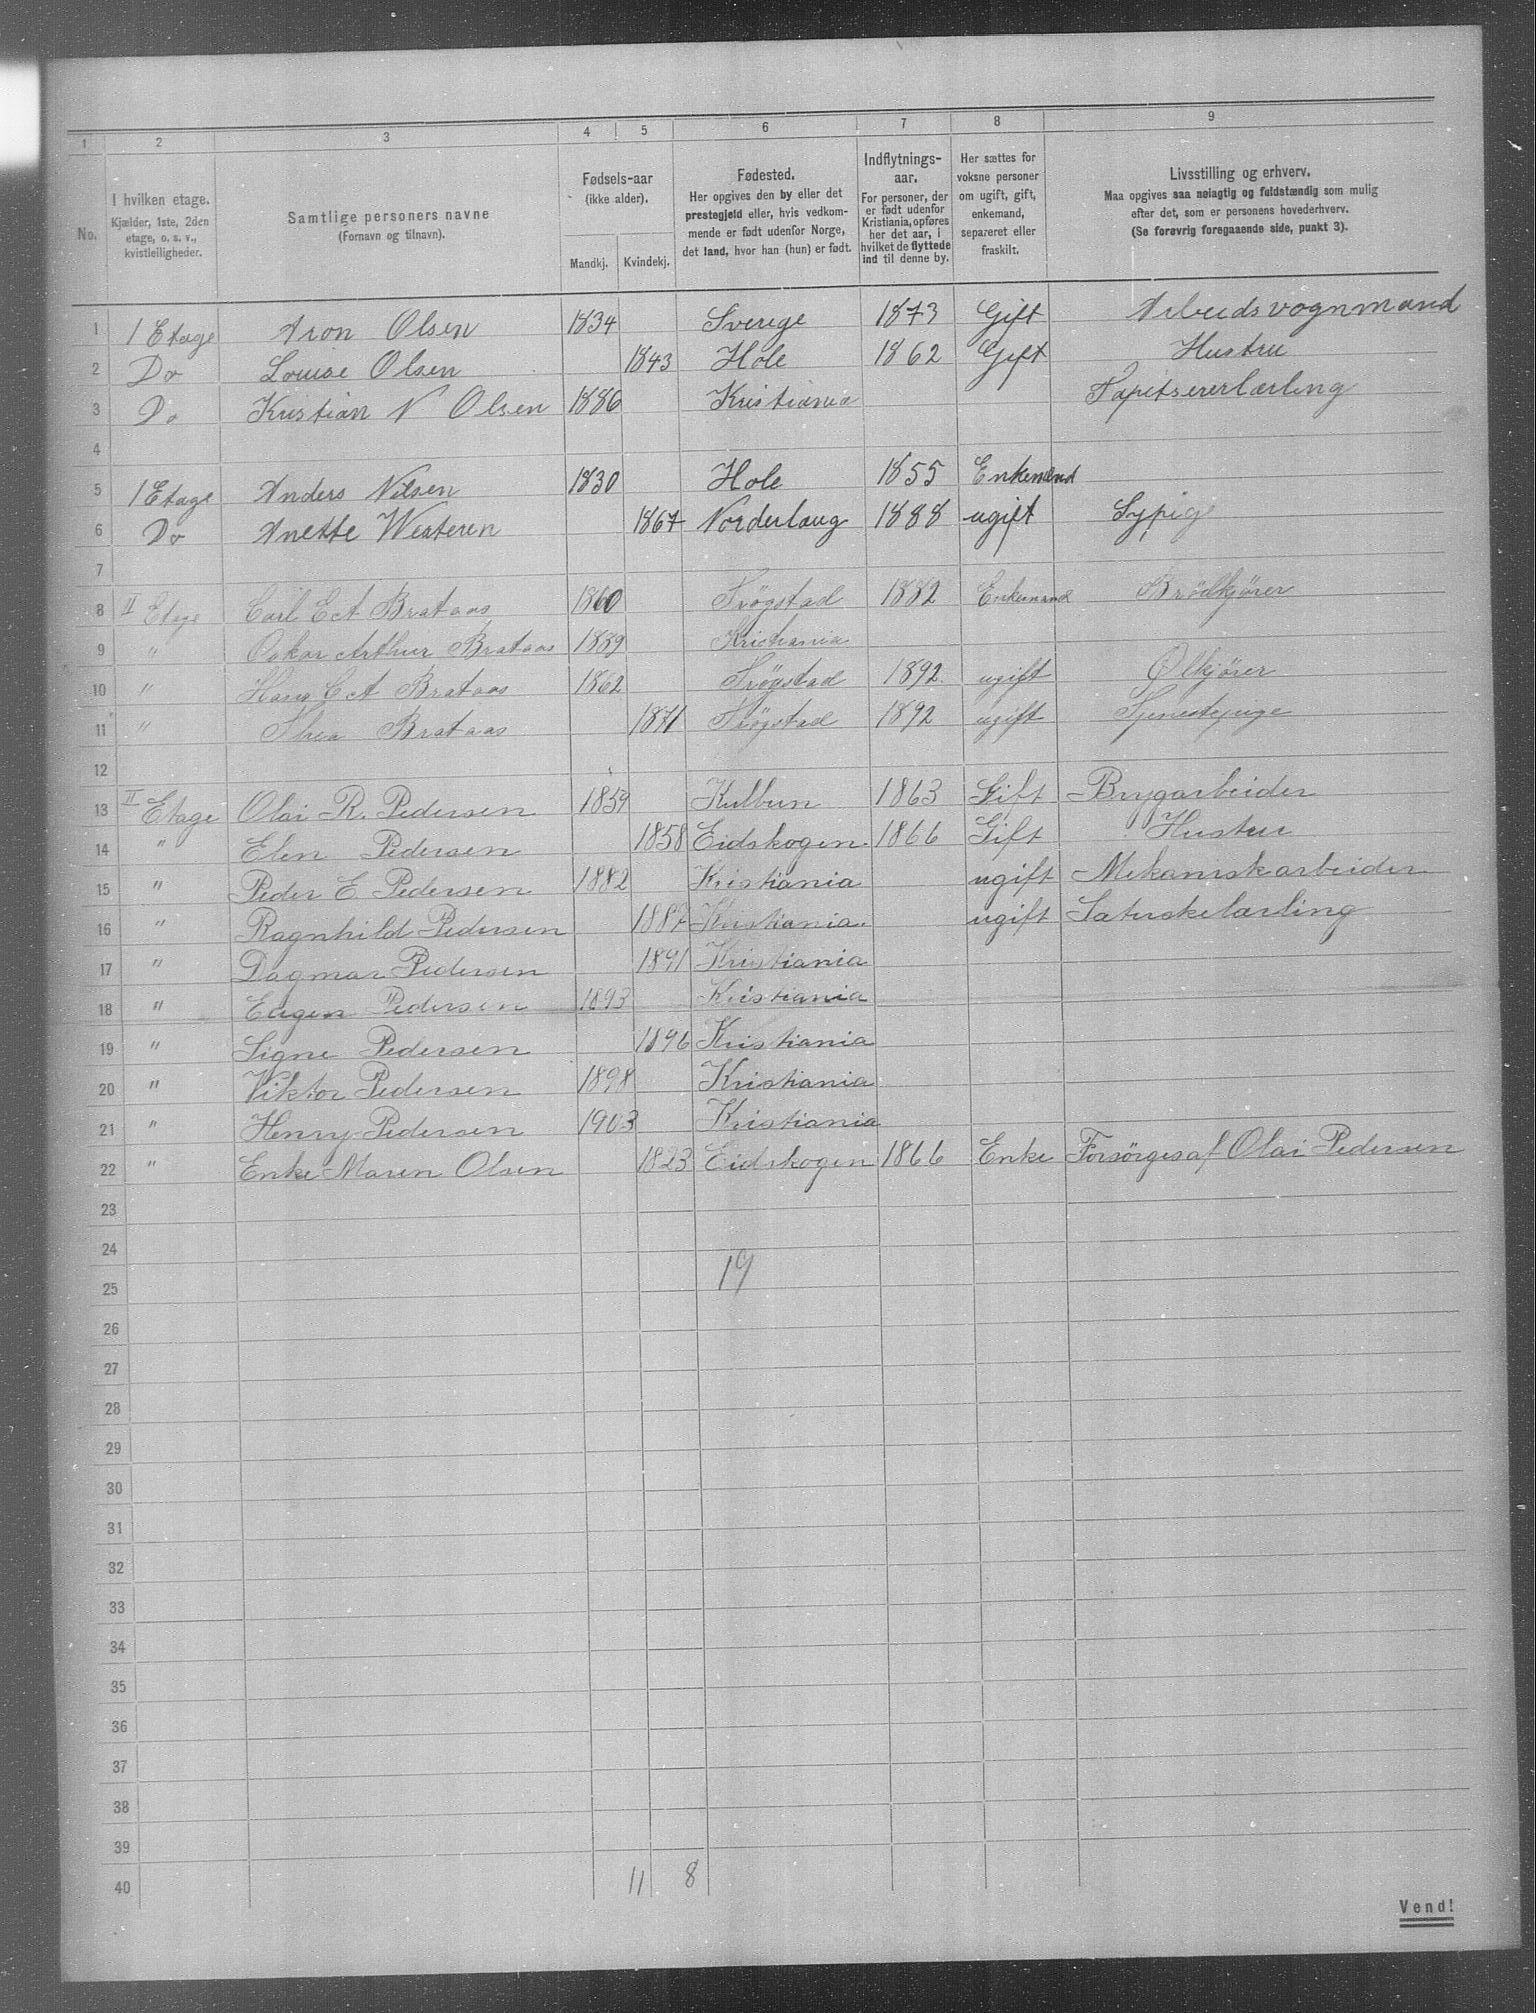 1 2 3 4 5 6 7 8 9
No.
I hvilken etage.
Kjælder, 1ste, 2den
etage, o. s. v.,
kvistleiligheder.
Samtlige personers navne
(Fornavn og tilnavn).
Fødsels-aar
(ikke alder).
Mandkj. Kvindekj.
Fødested.
Her opgives den by eller det
prestegjeld eller, hvis vedkom-
mende er født udenfor Norge,
det land, hvor han (hun) er født.
Indflytnings-
aar.
For personer, der
er født udenfor
Kristiania, opføres
her det aar, i
hvilket de flyttede
ind til denne by.
Her sættes for
voksne personer
om ugift, gift,
enkemand,
separeret eller
fraskilt.
Livsstilling og erhverv.
Maa opgives saa nøiagtig og fuldstændig som mulig
efter det, som er personens hovederhverv.
(Se forøvrig foregaaende side, punkt 3).
1 1 Etage Aron Olsen 1834 Sverige 1873 Gift Arbeidsvognmand
2 Do Louise Olsen 1843 Hole 1862 Gift Hustru
3 Do Kristian N Olsen 1886 Kristiania Tapitsererlærling
4
5 1 Etage Anders Nilsen 1830 Hole 1855 Enkemand
6 Do Anette Westeren 1867 Norderhaug 1888 ugift Sypige
7
8 II Etage Carl E A Brataas 1860 Trøgstad 1882 Enkemand Brødkjører
9 " Oskar Arthur Brataas 1889 Kristiania
10 " Hans C A Brataas 1862 Trøgstad 1892 ugift Ølkjører
11 " Thea Brataas 1871 Trøgstad 1892 ugift Tjenestepige
12
13 II Etage Olai R. Pedersen 1859 1863 Gift Brygarbeider
14 " Elen Pedersen 1858 Eidskogen 1866 Gift Hustru
15 " Peder E. Pedersen 1882 Kristiania ugift Mekaniskarbeider
16 " Ragnhild Pedersen 1887 Kristiania. ugift
17 " Dagmar Pedersen 1891 Kristiania
18 " Eugen Pedersen 1893 Kristiania
19 " Signe Pedersen 1896 Kristiania
20 " Viktor Pedersen 1898 Kristiania
21 " Henry Pedersen 1903 Kristiania
22 " Enke Maren Olsen 1823 Eidskogen 1866 Enke Forsørges af Olai Pedersen
23
24
19
25
26
27
28
29
30
31
32
33
34
35
36
37
38
39
40 11 8
Vend!